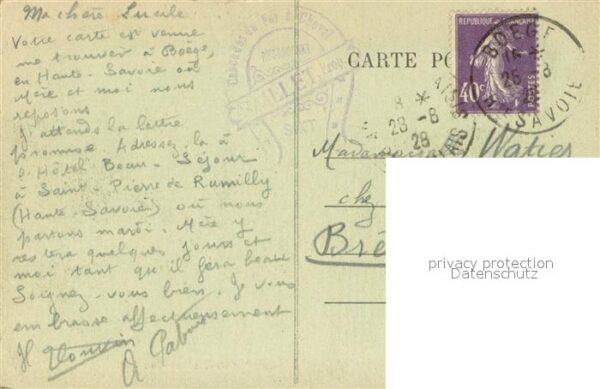 Ma chère Lucile
Votre carte est venue
me trouver à Boège,
en Haute-Savoie où
Mère et moi nous
reposons
J'attends la lettre
promise. Adressez-la à
l'Hôtel Beau-Séjour
à Saint-Pierre de Rumilly
(Haute-Savoie) où nous
partons mardi. Mère y
restera quelques jours et
moi tant qu'il fera beau
Soignez-vous bien. Je vous
embrasse affectueusement
CARTE PO
REPUBLIQUE FRANÇAISE
40c
POSTES
BOEGE
Hte SAVOIE
28-8
28
Madame Watier
chez
Bré
privacy protection
Datenschutz